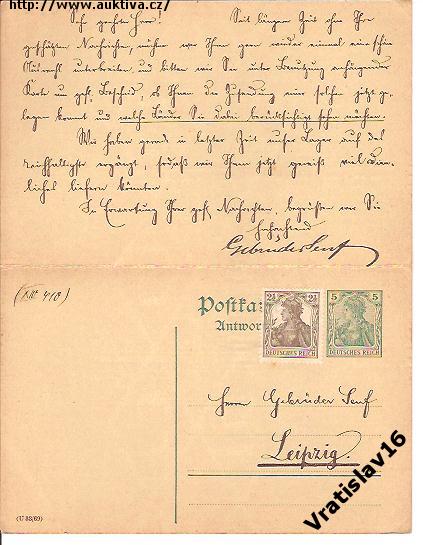 http://www.auktiva.cz/
Sehr geehrter Herr! Seit längerer Zeit ohne Ihre
geschätzten Nachrichten, möchten wir Ihnen gern wieder einmal eine schöne
Auswahl unterbreiten, und bitten wir Sie unter Benutzung anhängender
Karte um gefl. Bescheid, ob Ihnen die Zusendung einer solchen jetzt ge-
legen kommt und welche Länder Sie dabei berücksichtigt sehen möchten.
Wir haben gerade in letzter Zeit unser Lager auf das
reichhaltigste ergänzt, sodaß wir Ihnen jetzt gewiß viel Dien-
liches liefern könnten.
In Erwartung Ihrer gefl. Nachrichten, begrüßen wir Sie
hochachtend
Gebrüder Senf
(XIII 410)
Postka
Antwor
2½ 2½
DEUTSCHES REICH
5 5
DEUTSCHES REICH
Herrn Gebrüder Senf
Leipzig.
(U 88/69)
Vratislav16